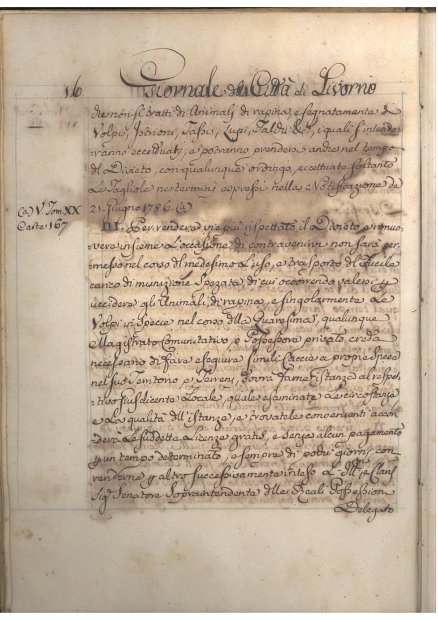 16 Giornale della Città di Livorno
che non si tratti di Animali di rapina, e segnatamente di
Volpi, Istrioni, Tassi, Lupi, Faldu &c, i quali s'intende
ranno eccettuati, e potranno prendersi anche nel tempo
del Divieto, con qualunque ordingo, eccettuato soltanto
Le Tagliole ne termini espressi nella Notificazione de
21 Giugno 1786. (a)
(a) V. Tom XX
Carte 167
III. Per rendere vie più rispettato il Divieto, e rimuo
vere insieme l'occasione di contravenirvi non sarà per
messo nel corso del medesimo l'uso, e trasporto di Fucile
carico di munizione spezzata, di cui occorrendo valersi p
uccidere gli Animali di rapina, e singolarmente Le
Volpi in specie nel corso della Quaresima, qualunque
Magistrato Comunitativo, e Possessore privato creda
necessario di fare eseguire simili Caccie a proprie Spese
nel suo Territorio e Terreni, dovrà farne istanza al respet
tivo Giusdicente Locale, quale esaminate Le circostanze
e La qualità dell'istanze, e trovatele convenienti accor
derà Le suddette Licenze gratis, e senza alcun pagamento
p un tempo determinato, e sempre di pochi giorni, con
renderne p altro successivamente inteso L'Ill. e Clmo
Sig. Senatore Soprintendente delle Reali Possessioni
Delegato